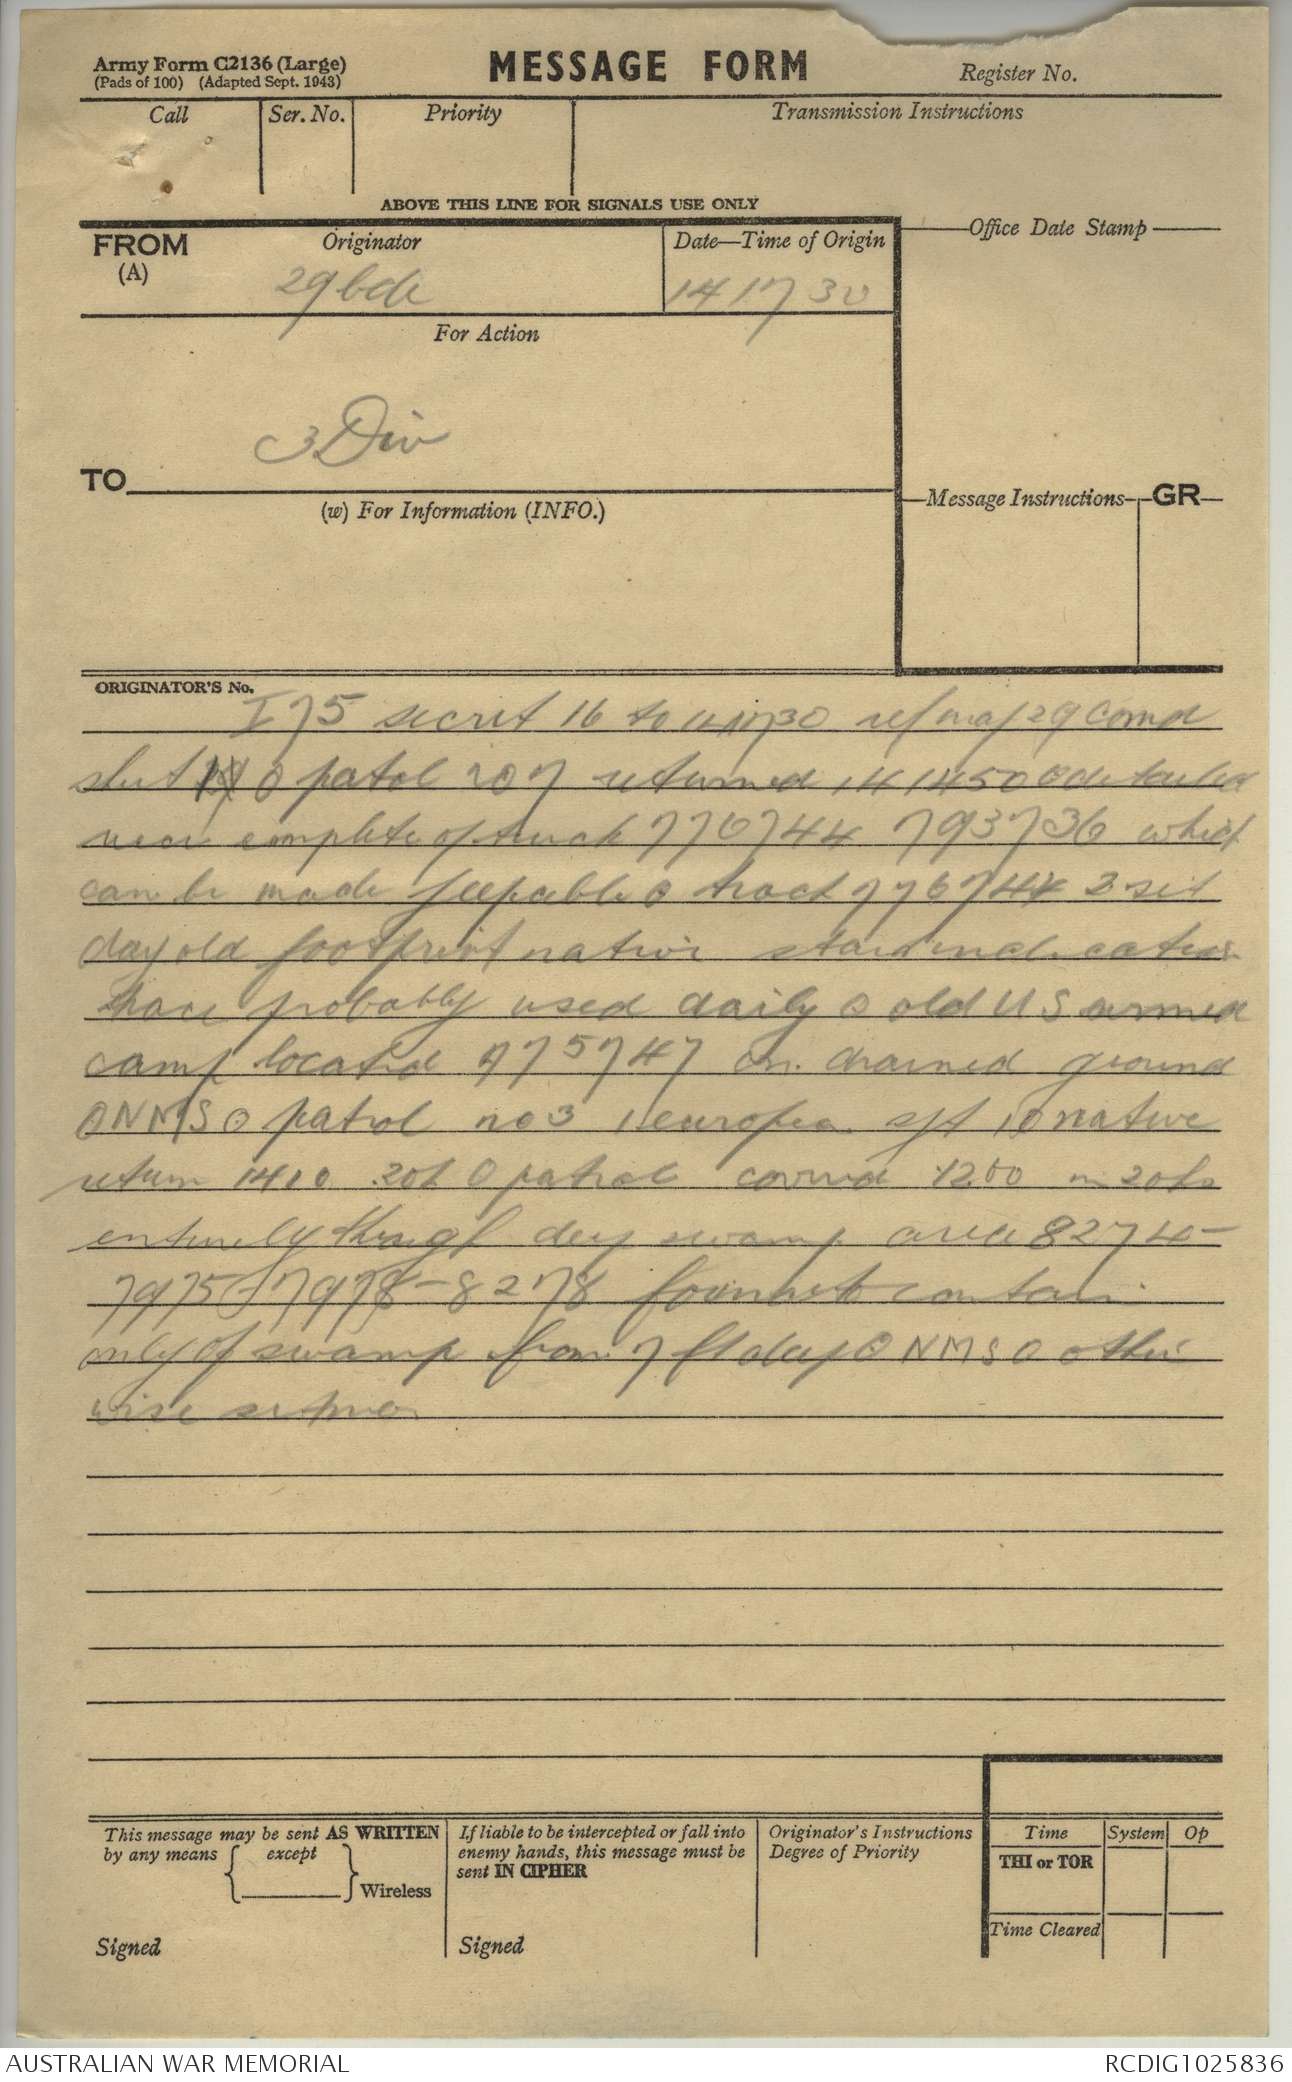 Army Form C2136 (Large)
(Pads of 100) (Adapted Sept. 1943)
MESSAGE FORM
Register No.
Call
Ser. No.
Priority
Transmission Instructions
ABOVE THIS LINE FOR SIGNALS USE ONLY
FROM
(A)
Originator
29 bde
Date—Time of Origin
141730
Office Date Stamp
For Action
3 Div
TO
(w) For Information (INFO.)
Message Instructions
GR
ORIGINATOR'S No.
I75 secret 16 to 141730 ref map 29 comd
O patol 207 returned 141450 O detailed
complete of 776744 793736 which
can be made jeepable O 776744 3
day old footprint native
probably used daily O old US armed
camp located 775747 on drained ground
O NMS O patrol no 3 1 european sjt 10 native
return 1410 O patrol covered 1200 in
entirely though dry swamp area 8274-
7975 7978-8278
only of swamp from 7 ft O NMS O other
wise
This message may be sent AS WRITTEN
by any means
except
Wireless
Signed
If liable to be intercepted or fall into
enemy hands, this message must be
sent IN CIPHER
Signed
Originator's Instructions
Degree of Priority
Time
System
Op
THI or TOR
Time Cleared
AUSTRALIAN WAR MEMORIAL
RCDIG1025836